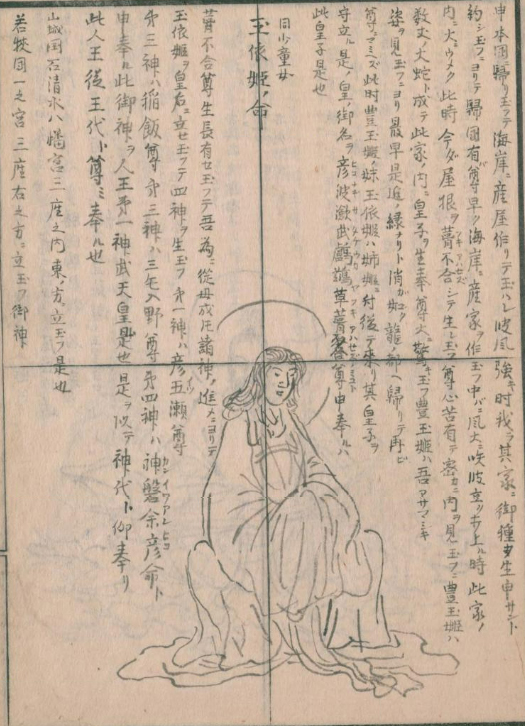 申本国ニ帰リ玉フテ海岸ニ産屋作リテ玉ハレ波風強キ時我ラ其ノ家ニ御種ヲ生申サント
約シ玉フニヨリテ帰国有バ尊早ク海岸ニ産家ヲ作玉フ中バニ風大ニ吹波立リ舟上ル時此家ノ
内ニ火ニウメク此時今ダ屋根ヲ葺不合シテ生レ玉フ尊心苦有テ密カニ内ヲ見玉フニ豊玉姫ハ
数丈ノ大蛇ト成テ此家ノ内ニ皇子ヲ生奉尊大ニ驚キ玉フ豊玉姫ハ吾アサマシキ
姿ヲ見玉フニヨリ最早是迄ノ縁ナリト消カ如ク龍都ヘ帰リテ再ビ
尊ニマミヘズ此时豊玉姫ノ妹玉依姫ハ姉姫ニ付後テ来リ其皇子ヲ
守立ル是ノ皇ノ御名ヲ彦波瀲武鸕鷀草葺不合尊申奉ルハ
此皇子是也
同少童女
玉依姫ノ命
葺不合尊生長有セ玉フテ吾為ニ従母成氏諸神ノ進メニヨリテ
玉依姫ヲ皇后ニ立セ玉フテ四神ヲ生玉フ第一神ハ彦五瀬尊
第二神ハ稲飯尊第三神ハ三毛入野尊第四神ハ神磐余彦命ト
申奉ル此御神ヲ人王第一神武天皇是也是ヲ以テ神代ト御奉リ
此人王後王代ト尊ミ奉ル也
山城国石清水八幡宮三座之内東ノ方ニ立玉フ是也
若狭国一之宮三座右之方ニ立玉フ御神